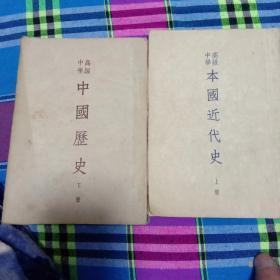 高級中學
中國歷史
下冊
高級中學
本國近代史
上冊